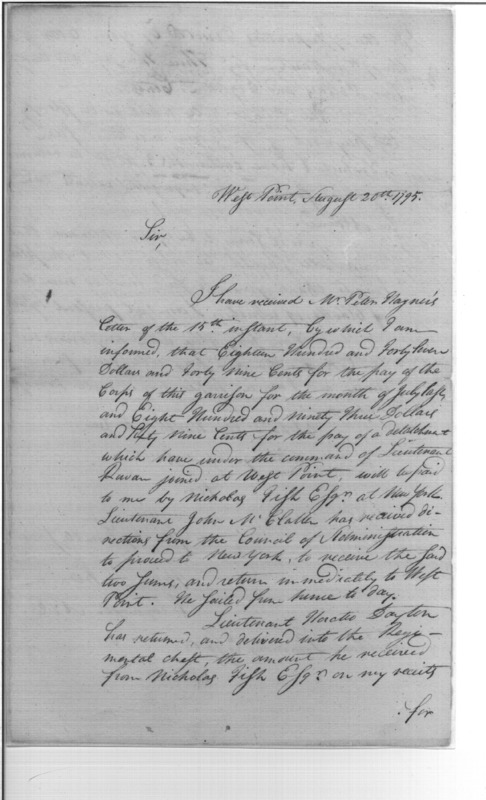 West Point, August 20th. 1795.
Sir,
I have received Mr. Peter Hagner's
letter of the 15th instant, by which I am
informed, that Eighteen Hundred and Forty Seven
Dollars and Forty Nine Cents for the pay of the
Corps of this garrison for the month of July last,
and Eight Hundred and Ninety Three Dollars
and Fifty Nine Cents for the pay of a detachment
which have under the command of Lieutenant
joined at West Point, will be paid
to me by Nicholas Fish Esqr. at New York.
Lieutenant John McClallen has received di-
rections from the Council of Administration
to proceed to New York, to receive the said
two sums, and return immediately to West
Point. He sailed from hence to day.
Lieutenant Horatio Dayton
has returned, and delivered into the Regi-
mental chest, the amount he received
from Nicholas Fish Esqr. on my receits
for